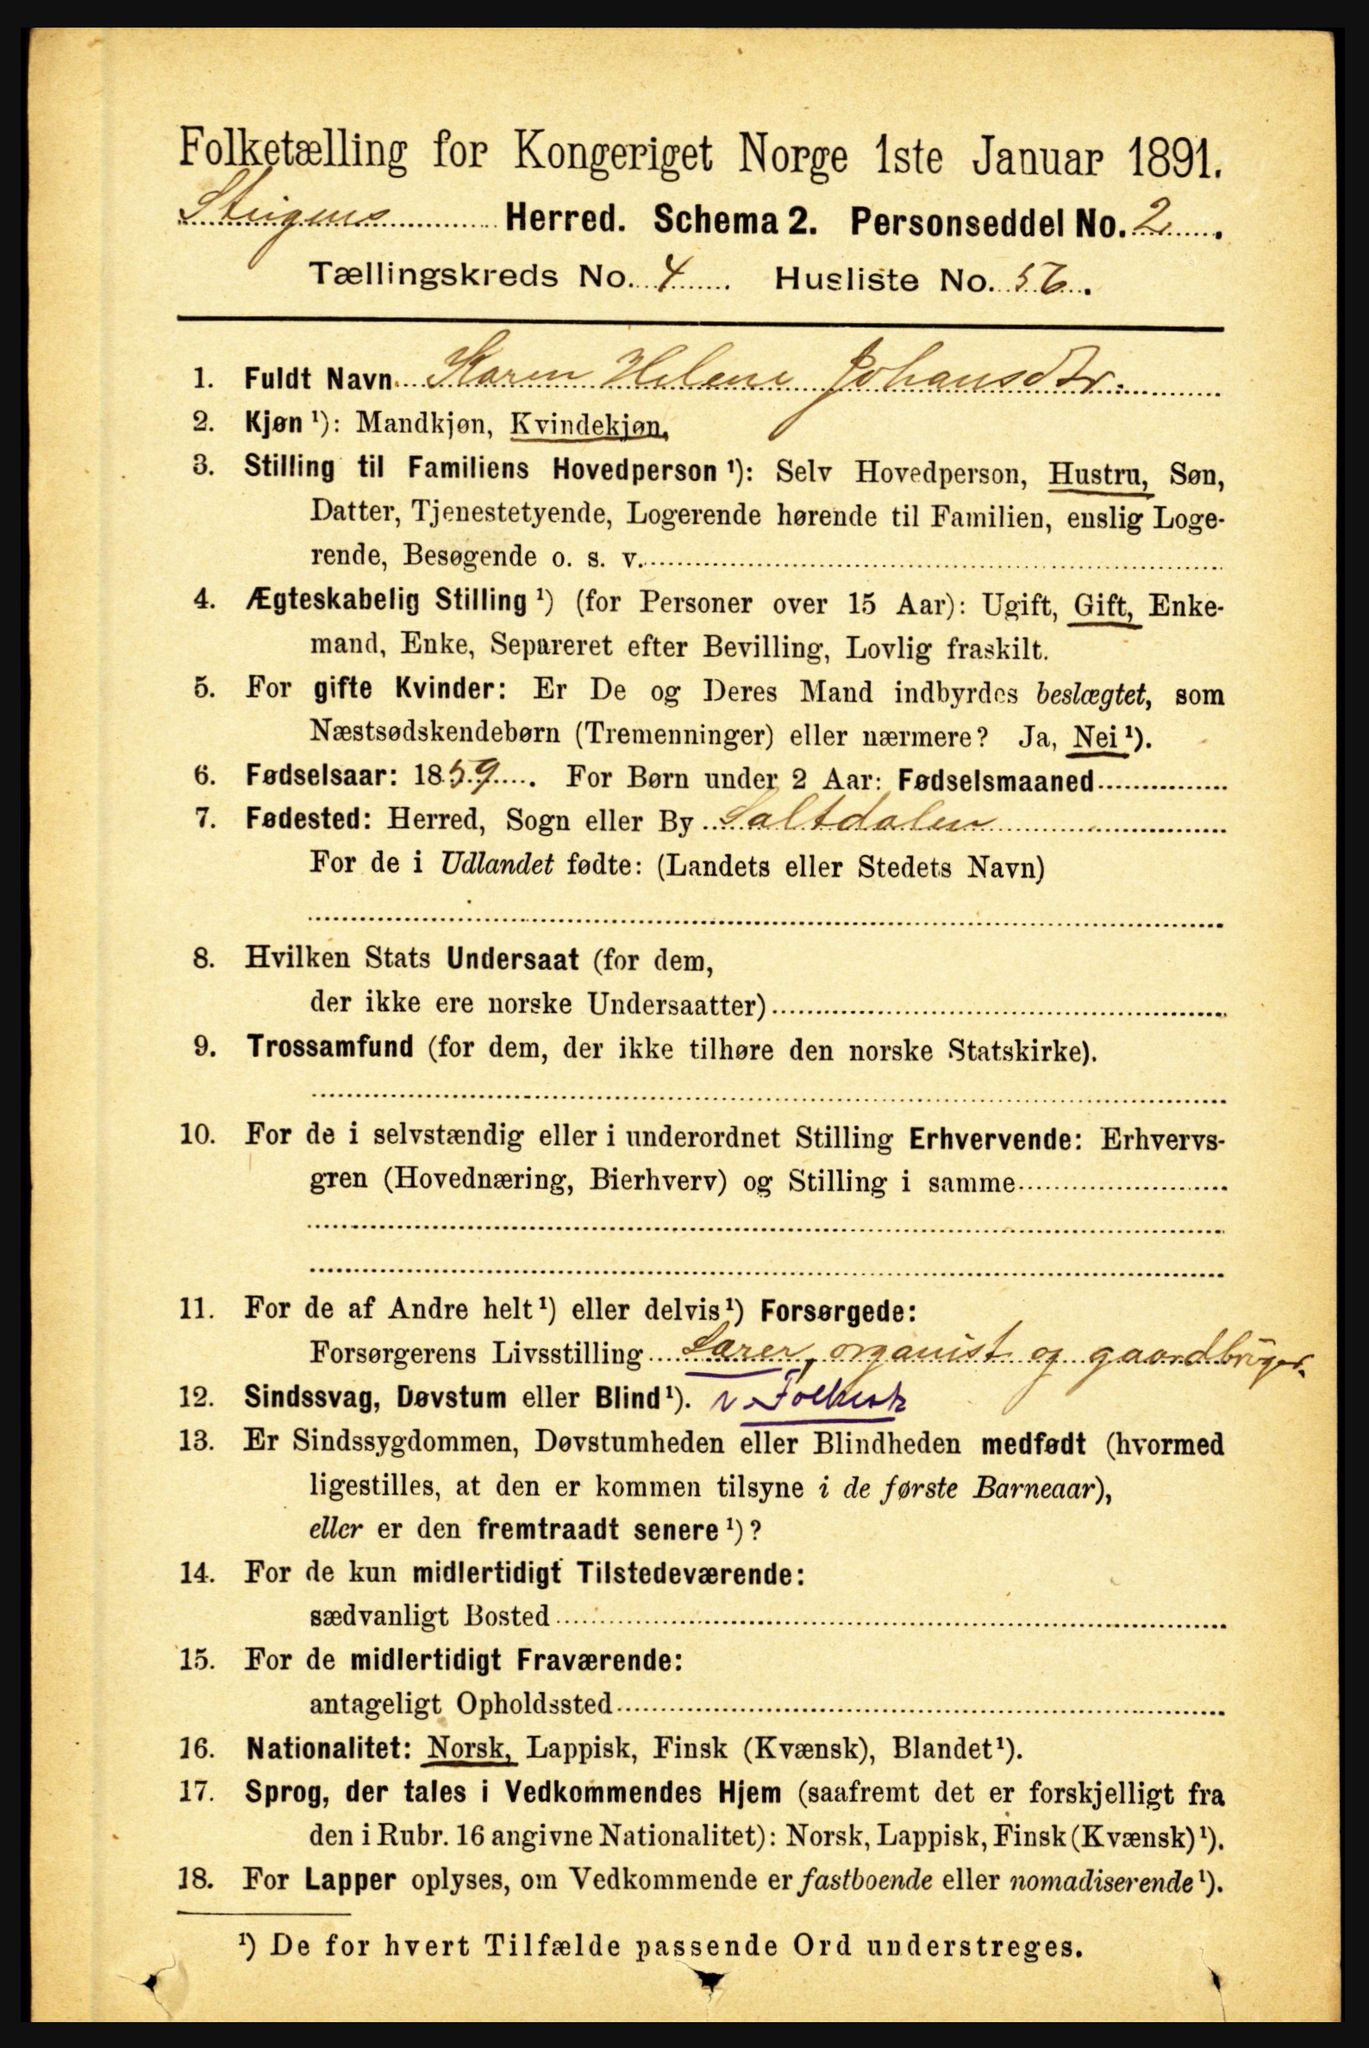 Folketælling for Kongeriget Norge 1ste Januar 1891.
Steigens Herred. Schema 2. Personseddel No. 2.
Tællingskreds No. 4 Husliste No. 56.
1. Fuldt Navn Karen Helene Johansdtr.
2. Kjøn ¹): Mandkjøn, Kvindekjøn,
3. Stilling til Familiens Hovedperson ¹): Selv Hovedperson, Hustru, Søn,
Datter, Tjenestetyende, Logerende hørende til Familien, enslig Loge-
rende, Besøgende o. s. v.
4. Ægteskabelig Stilling ¹) (for Personer over 15 Aar): Ugift, Gift, Enke-
mand, Enke, Separeret efter Bevilling, Lovlig fraskilt.
5. For gifte Kvinder: Er De og Deres Mand indbyrdes beslægtet, som
Næstsødskendebørn (Tremenninger) eller nærmere? Ja, Nei ¹).
6. Fødselsaar: 1859. For Børn under 2 Aar: Fødselsmaaned
7. Fødested: Herred, Sogn eller By Saltdalen
For de i Udlandet fødte: (Landets eller Stedets Navn)
8. Hvilken Stats Undersaat (for dem,
der ikke ere norske Undersaatter)
9. Trossamfund (for dem, der ikke tilhøre den norske Statskirke).
10. For de i selvstændig eller i underordnet Stilling Erhvervende: Erhvervs-
gren (Hovednæring, Bierhverv) og Stilling i samme
11. For de af Andre helt ¹) eller delvis ¹) Forsørgede:
Forsørgerens Livsstilling Lærer, organist og gaardbruger.
12. Sindssvag, Døvstum eller Blind ¹). v. Folkesk
13. Er Sindssygdommen, Døvstumheden eller Blindheden medfødt (hvormed
ligestilles, at den er kommen tilsyne i de første Barneaar),
eller er den fremtraadt senere ¹)?
14. For de kun midlertidigt Tilstedeværende:
sædvanligt Bosted
15. For de midlertidigt Fraværende:
antageligt Opholdssted
16. Nationalitet: Norsk, Lappisk, Finsk (Kvænsk), Blandet ¹).
17. Sprog, der tales i Vedkommendes Hjem (saafremt det er forskjelligt fra
den i Rubr. 16 angivne Nationalitet): Norsk, Lappisk, Finsk (Kvænsk) ¹).
18. For Lapper oplyses, om Vedkommende er fastboende eller nomadiserende ¹).
¹) De for hvert Tilfælde passende Ord understreges.